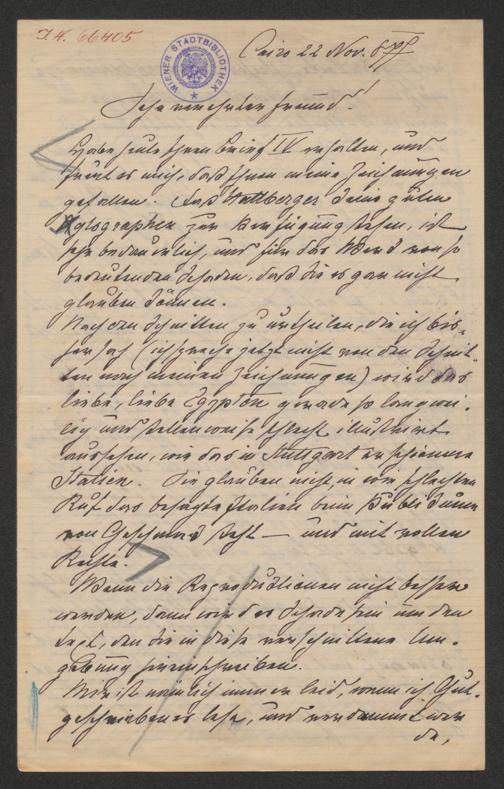 J. N. 66405
WIENER STADTBIBLIOTHEK
Cairo 22 Nov.
Sehr verehrter Freund!
Habe heute Ihren Brief IV erhalten, und
freut es mich, daß Ihnen meine Zeichnungen
gefallen. Daß Hallberger keine guten
Xylographen zur Verfügung stehen, ist
sehr bedauerlich, und für das Werk von so
bedeutendem Schaden, daß Sie es gar nicht
glauben können.
Nach den Schnitten zu urtheilen, die ich bis-
her sah (ich spreche jetzt nicht von den Schnit-
ten nach meinen Zeichnungen) wird das
liebe, liebe Egypten gerade so langwei-
lig und stellenweise schlecht illustrirt
aussehen, wie das in Stuttgart erschienene
Italien. Sie glauben nicht, in wie schlechtem
Ruf das besagte Italien beim Publikum
von Geschmack steht — und mit vollem
Rechte.
Wenn die Reproductionen nicht besser
werden, dann wird es Schade sein um den
Text, den Sie in diese verschnittene Um-
gebung hineinschreiben.
Mir ist nämlich immer leid, wenn ich Gut-
geschriebenes lese, und verdammt wer
de,